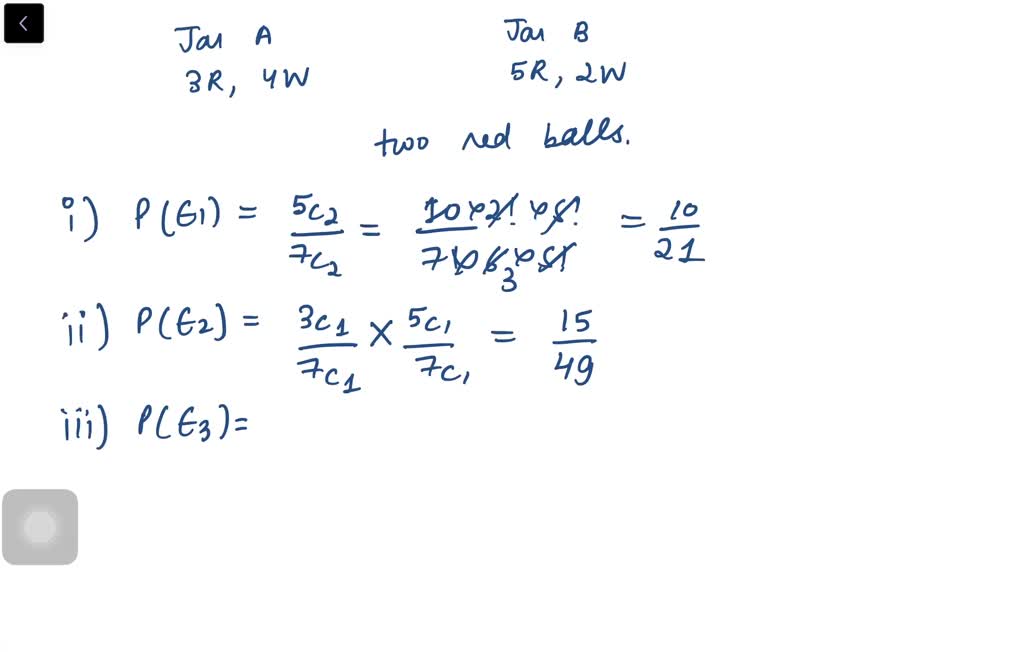 Jar A Jar B
3R, 4W 5R, 2W
two red balls.
i) P(E1) = 5C2/7C2 = 10×2!×5!/7×6×5! 3 = 10/21
ii) P(E2) = 3C1/7C1 × 5C1/7C1 = 15/49
iii) P(E3)=